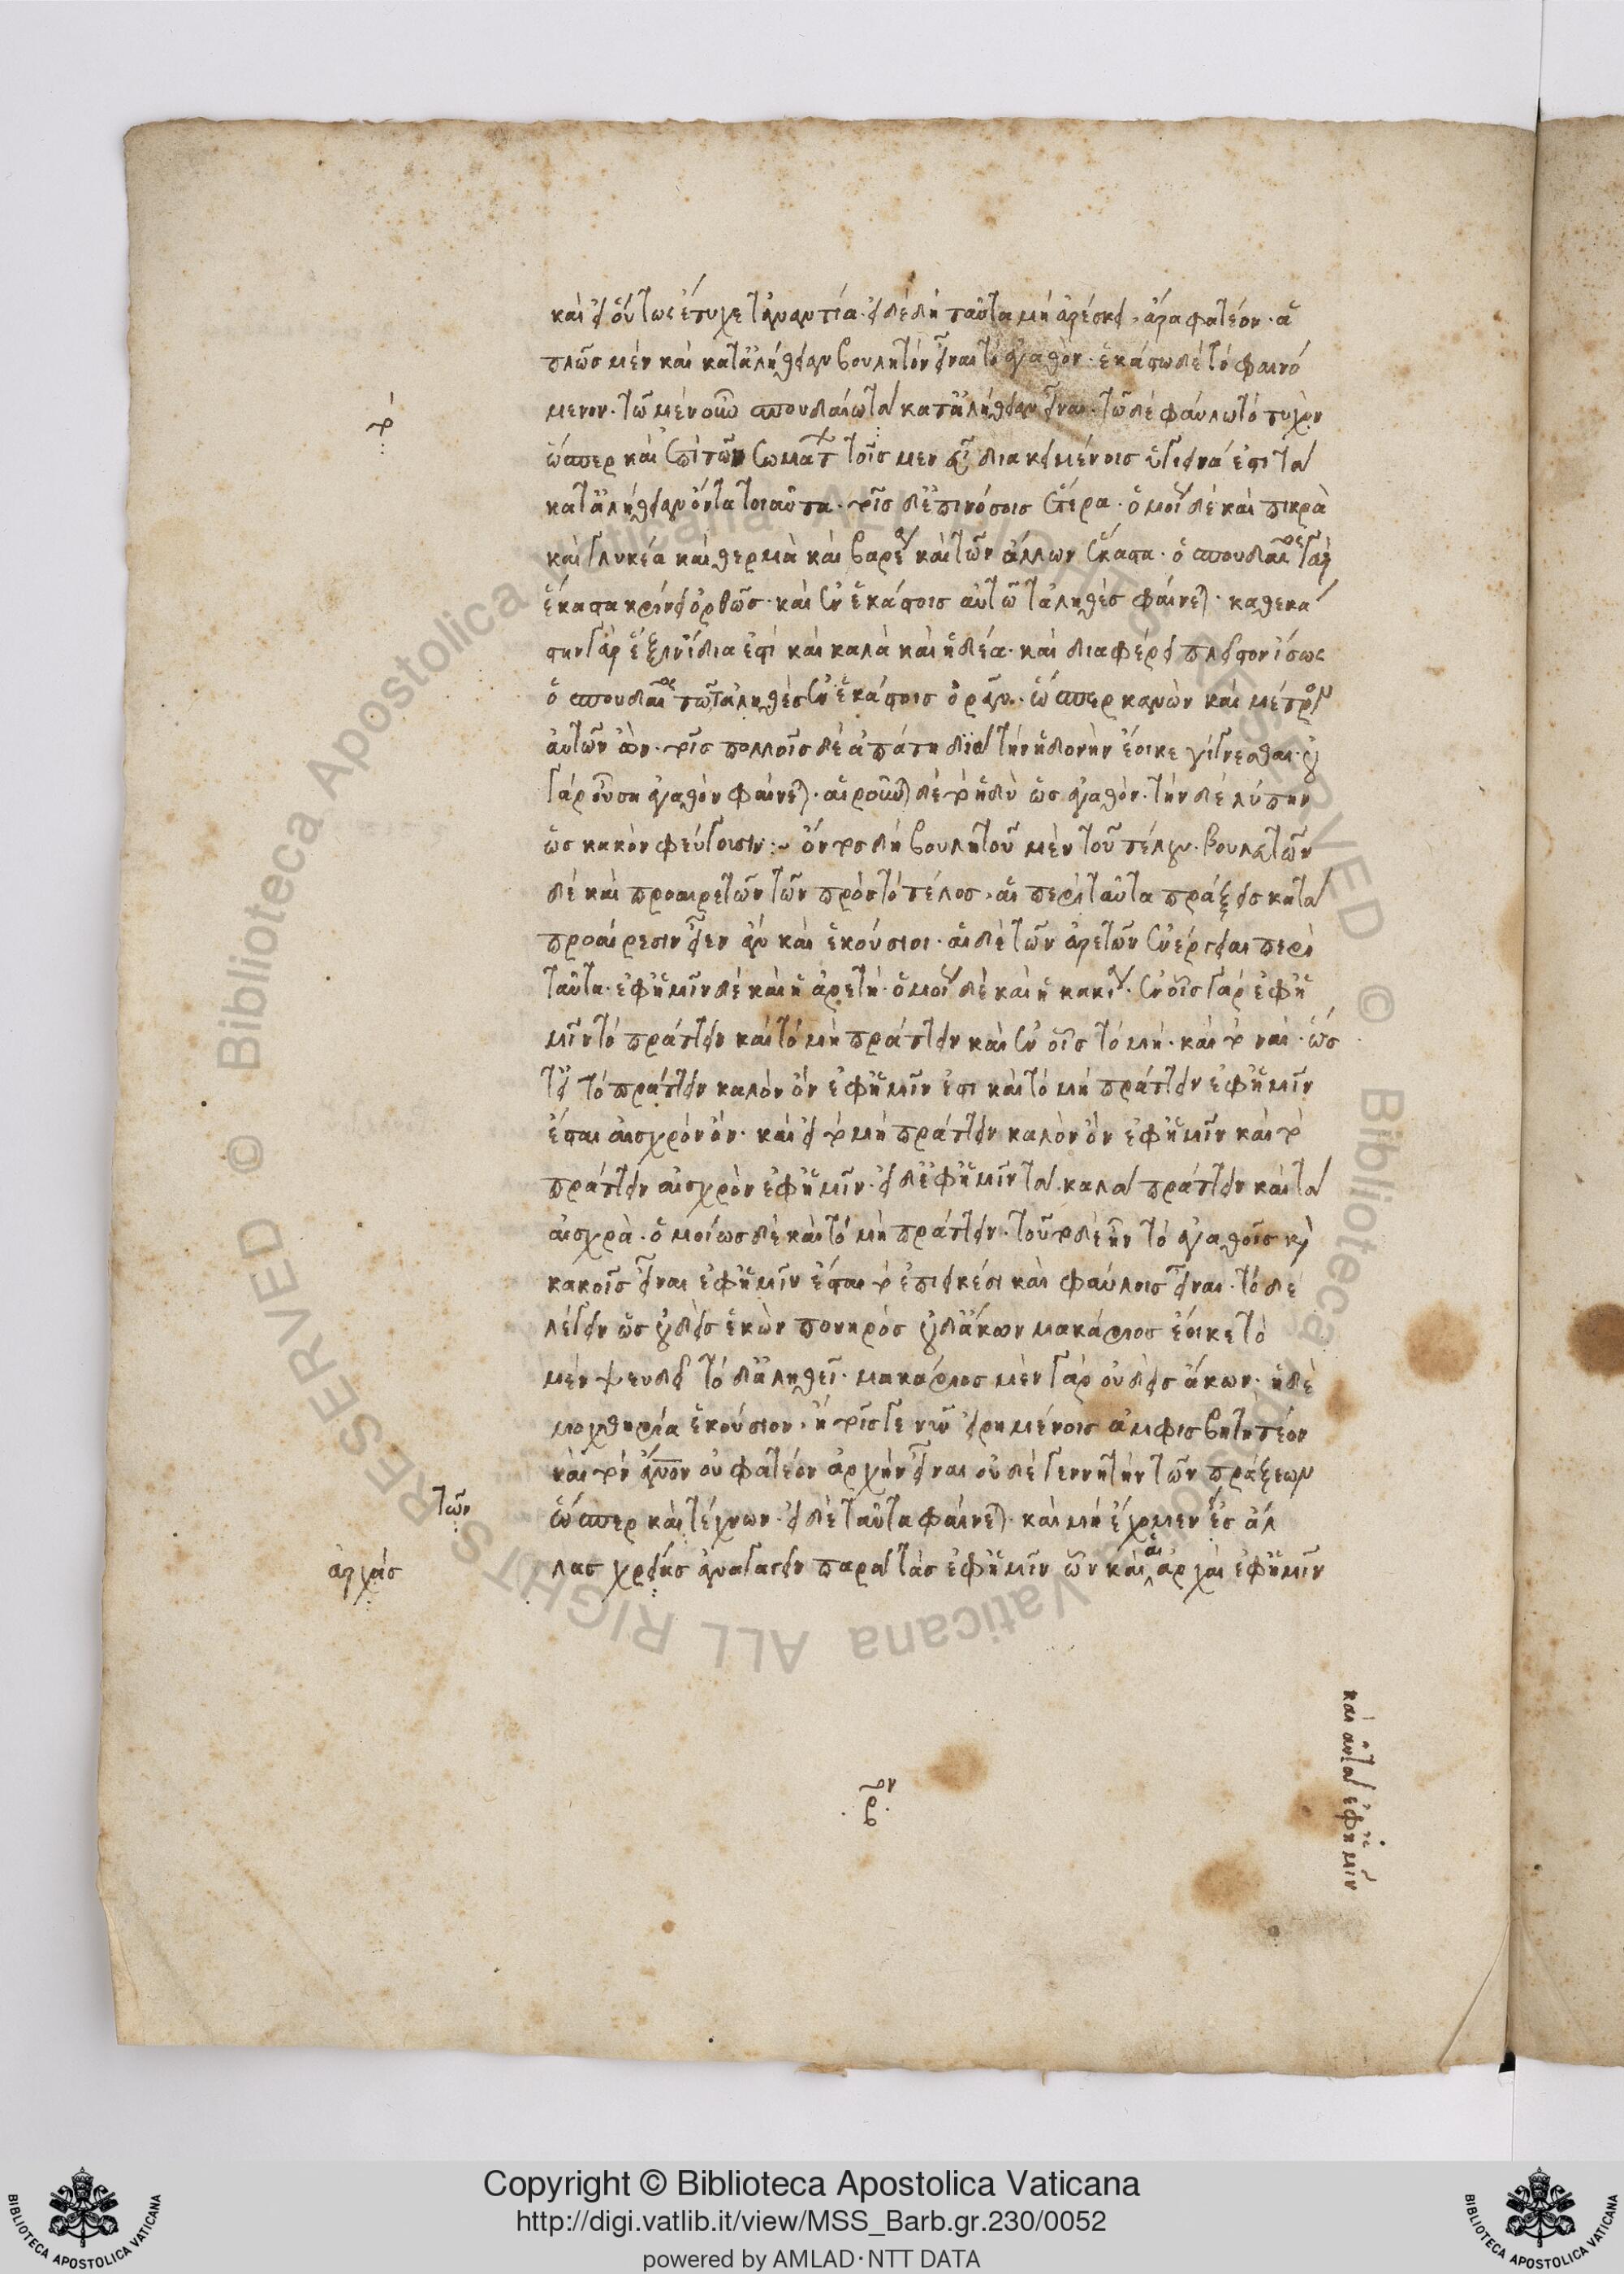 καὶ εἰ οὕτως ἔτυχε τἀναντία· εἰ δὲ δὴ ταῦτα μὴ ἀρέσκει, ἆρα φατέον· ἁ
πλῶς μὲν καὶ κατ' ἀλήθειαν βουλητὸν εἶναι τὸ ἀγαθὸν· ἑκάστω δὲ τὸ φαινό
μενον· τῶ μὲν οὖν σπουδαίω τὸ κατ' ἀλήθειαν εἶναι· τῶ δὲ φαύλω τὸ τυχὸν
ὥσπερ καὶ ἐπὶ τῶν σωμάτων τοῖς μεν εὖ διακειμένοις ὑγιεινά ἐστι τὰ
κατ' ἀλήθειαν ὄντα τοιαῦτα· τοῖς δ' ἐπινόσοις ἕτερα· ὁμοίως δὲ καὶ πικρὰ
καὶ γλυκέα καὶ θερμὰ καὶ βαρέα καὶ τῶν ἄλλων ἕκαστα· ὁ σπουδαῖος γὰρ
ἕκαστα κρίνει ὀρθῶς· καὶ ἐν ἑκάστοις αὐτῶ τἀληθὲς φαίνεται· καθ' ἑκά
στην γὰρ ἕξιν ἴδιά ἐστι καὶ καλὰ καὶ ἡδέα· καὶ διαφέρει πλεῖστον ἴσως
ὁ σπουδαῖος τῶ τἀληθὲς ἐν ἑκάστοις ὁρᾶν· ὥσπερ κανὼν καὶ μέτρον
αὐτῶν ὢν· τοῖς πολλοῖς δὲ ἀπάτη διὰ τὴν ἡδονὴν ἔοικε γίγνεσθαι· οὐ
γὰρ οὖσα ἀγαθὸν φαίνεται· αἱροῦνται δὲ τὸ ἡδὺ ὡς ἀγαθὸν· τὴν δὲ λύπην
ὡς κακὸν φεύγουσιν:– ὄντος δὴ βουλητοῦ μὲν τοῦ τέλους· βουλευτῶν
δὲ καὶ προαιρετῶν τῶν πρὸς τὸ τέλος, αἱ περὶ ταῦτα πράξεις κατὰ
προαίρεσιν εἶεν ἂν καὶ ἑκούσιοι· αἱ δὲ τῶν ἀρετῶν ἐνέργειαι περὶ
ταῦτα· ἐφ' ἡμῖν δὲ καὶ ἡ ἀρετή· ὁμοίως δὲ καὶ ἡ κακία· ἐν οἷς γὰρ ἐφ' ἡ
μῖν τὸ πράττειν καὶ τὸ μὴ πράττειν καὶ ἐν οἷς τὸ μή· καὶ τὸ ναί· ὥς
τε εἰ τὸ πράττειν καλὸν ὂν ἐφ' ἡμῖν ἐστι καὶ τὸ μὴ πράττειν ἐφ' ἡμῖν
ἔσται αἰσχρὸν ὄν· καὶ εἰ τὸ μὴ πράττειν καλὸν ὂν ἐφ' ἡμῖν καὶ τὸ
πράττειν αἰσχρὸν ἐφ' ἡμῖν· εἰ δ' ἐφ' ἡμῖν τὰ καλὰ πράττειν καὶ τὰ
αἰσχρὰ· ὁμοίως δὲ καὶ τὸ μὴ πράττειν· τοῦτο δὲ ἦν τὸ ἀγαθοῖς καὶ
κακοῖς εἶναι ἐφ' ἡμῖν ἔσται τὸ ἐπιεικέσι καὶ φαύλοις εἶναι· τὸ δὲ
λέγειν ὡς οὐδεὶς ἑκὼν πονηρὸς οὐδ' ἄκων μακάριος ἔοικε τὸ
μὲν ψευδεῖ τὸ δ' ἀληθεῖ· μακάριος μὲν γὰρ οὐδεὶς ἄκων· ἡ δὲ
μοχθηρία ἑκούσιον, ἢ τοῖς γε νῦν εἰρημένοις ἀμφισβητητέον
καὶ τὸν ἄνθρωπον οὐ φατέον ἀρχὴν εἶναι οὐδὲ γεννητὴν τῶν πράξεων
ὥσπερ καὶ τέκνων· εἰ δὲ ταῦτα φαίνεται· καὶ μὴ ἔχομεν εἰς ἄλ
λας χρείας ἀναγαγεῖν παρὰ τὰς ἐφ' ἡμῖν ὧν καὶ αἱ ἀρχαὶ ἐφ' ἡμῖν
τὸ
τῶν
ἀρχάς
καὶ αὐτὰ ἐφ' ἡμῖν
Copyright © Biblioteca Apostolica Vaticana
http://digi.vatlib.it/view/MSS_Barb.gr.230/0052
powered by AMLAD·NTT DATA
BIBLIOTECA APOSTOLICA VATICANA
BIBLIOTECA APOSTOLICA VATICANA
© Biblioteca Apostolica Vaticana ALL RIGHTS RESERVED © Biblioteca Apostolica Vaticana ALL RIGHTS RESERVED